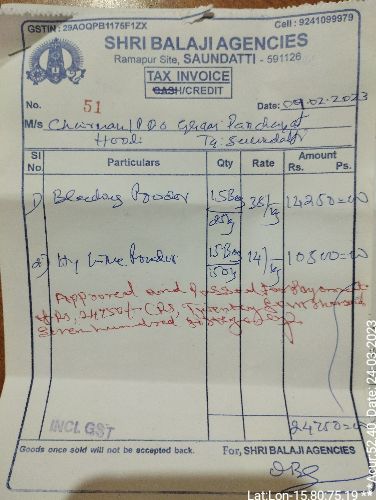 GSTIN : 29AOQPB1175F1ZX Cell : 9241099979
SHRI BALAJI AGENCIES
Ramapur Site, SAUNDATTI - 591126
TAX INVOICE
CASH/CREDIT
No. 51 Date: 09.02.2023
M/s Chairman/PDO Gram Panchayat
Hooli Tq: Saundatti
Sl No. Particulars Qty Rate Amount Rs. Ps.
1) Bleaching Powder 15 Bag 25kg 38/kg 14250=00
2) Hy Lime Powder 15 Bag 50kg 14/kg 10500=00
Approved and Passed for Payment
of Rs, 24750/- (Rs, Twenty Four Thousand
Seven hundred
INCL GST
24750=00
Goods once sold will not be accepted back. For, SHRI BALAJI AGENCIES
Lat:Lon-15.80:75.19
Date 24-03-2023